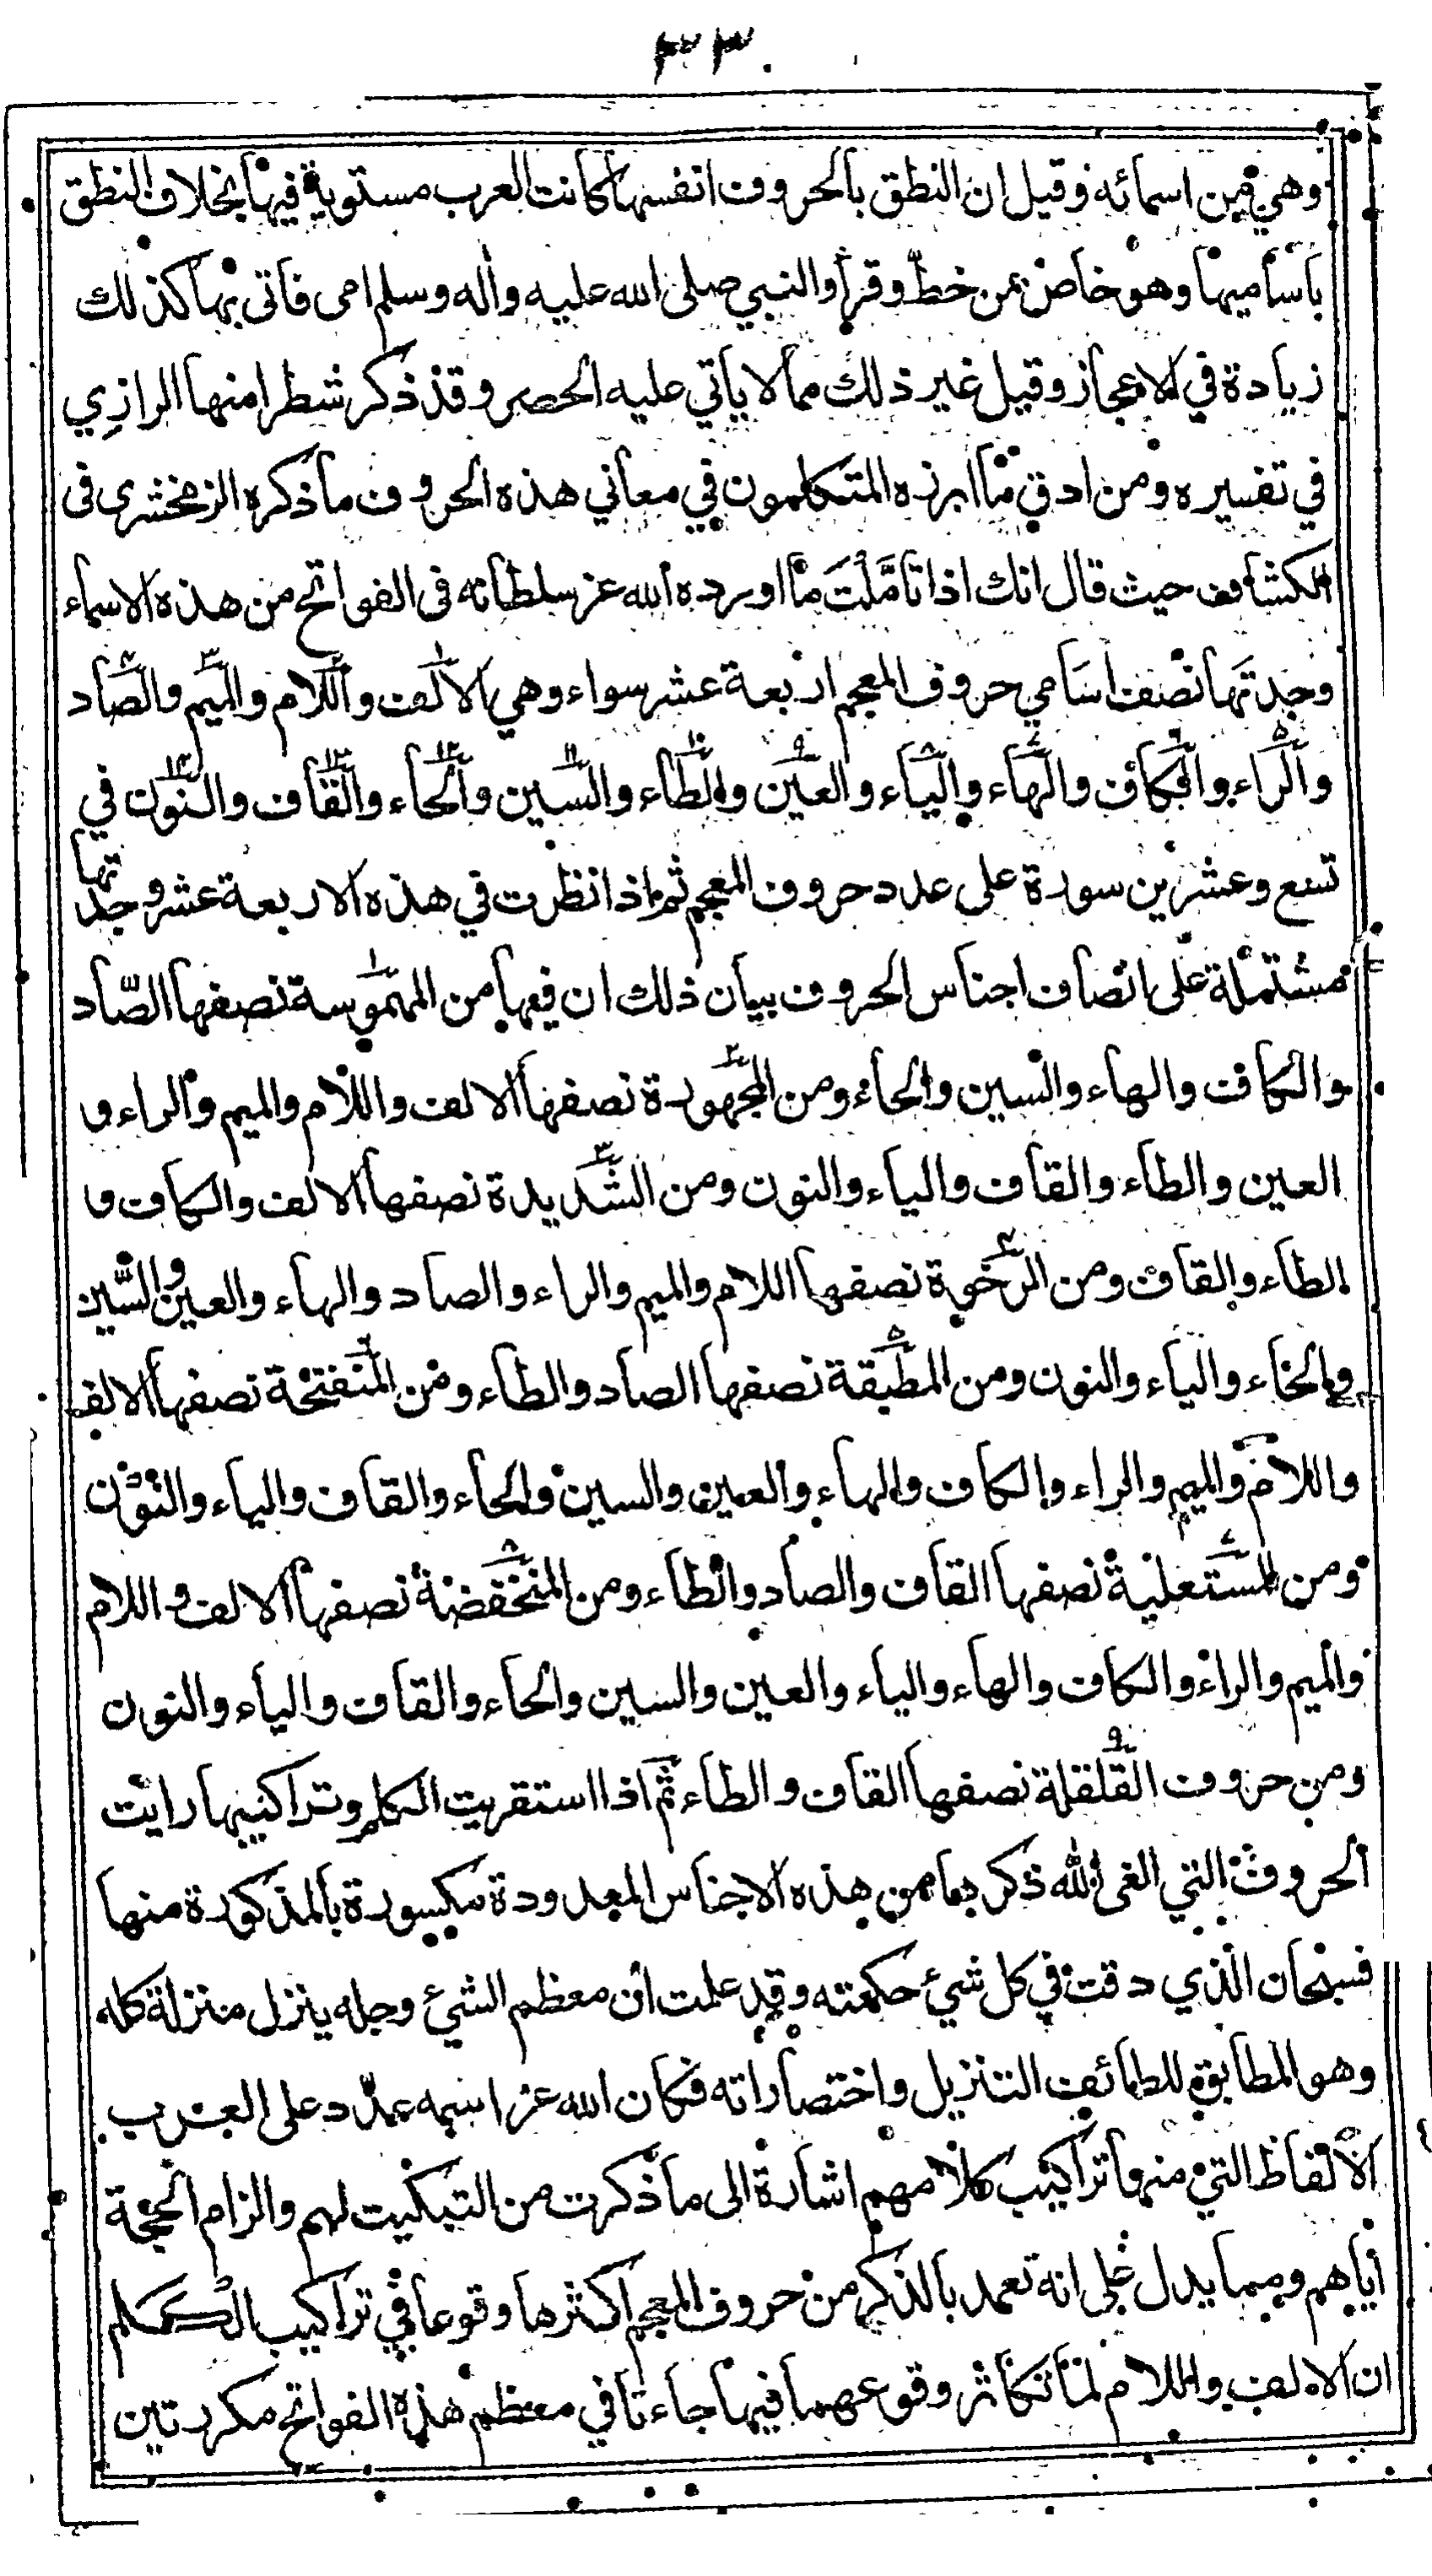 ٣٣
وهي من اسمائه وقيل ان النطق بالحروف انفسها كانت العرب مستوية فيها بخلاف النطق
باساميها وهو خاص بمن خطّ وقرأ والنبي صلى الله عليه وأله وسلم امى فاتى بها كذلك
زيادة في الاعجاز وقيل غير ذلك مما لا يأتي عليه الحصر وقد ذكر شطرا منها الرازي
في تفسيره ومن ادق ما ابرزه المتكلمون في معاني هذه الحروف ما ذكره الزمخشرى فى
الكشاف حيث قال انك اذا تامّلت ما اورده الله عز سلطانه فى الفواتح من هذه الاسماء
وجدتها نصف اسامي حروف المعجم اربعة عشر سواء وهي الالف واللام والميم والصاد
والراء والكاف والهاء والياء والعين والطاء والسين والحاء والقاف والنون في
تسع وعشرين سورة على عدد حروف المعجم ثم اذا نظرت في هذه الاربعة عشر وجدتها
مشتملة على انصاف اجناس الحروف بيان ذلك ان فيها من المهموسة نصفها الصّاد
والكاف والهاء والسين والحاء ومن المجهورة نصفها الالف واللام والميم والراء و
العين والطاء والقاف والياء والنون ومن الشديدة نصفها الالف والكاف و
الطاء والقاف ومن الرخوة نصفها اللام والميم والراء والصاد والهاء والعين والسّين
والحاء والياء والنون ومن المطبقة نصفها الصاد والطاء ومن المنفتحة نصفها الالف
واللام والميم والراء والكاف والهاء والعين والسين والحاء والقاف والياء والنون
ومن المستعلية نصفها القاف والصاد والطاء ومن المنخفضة نصفها الالف واللام
والميم والراء والكاف والهاء والياء والعين والسين والحاء والقاف والياء والنون
ومن حروف القلقلة نصفها القاف والطاء ثم اذا استقريت الكلم وتراكيبها رايت
الحروف التي الغى الله ذكرها من هذه الاجناس المعدودة مكسورة بالمذكورة منها
فسبحان الذي دقت في كل شيئ حكمته وقد علمت ان معظم الشيئ وجله ينزل منزلة كله
وهو المطابق للطائف التنزيل واختصاراته فكان الله عز اسمه عدّد على العرب
الالفاظ التي منها تراكيب كلامهم اشارة الى ما ذكرت من التبكيت لهم والزام الحجة
اياهم ومما يدل على انه تعمد بالذكر من حروف المعجم اكثرها وقوعا في تراكيب الكلم
ان الالف واللام لما تكاثر وقوعهما فيها جاءتا في معظم هذه الفواتح مكررتين